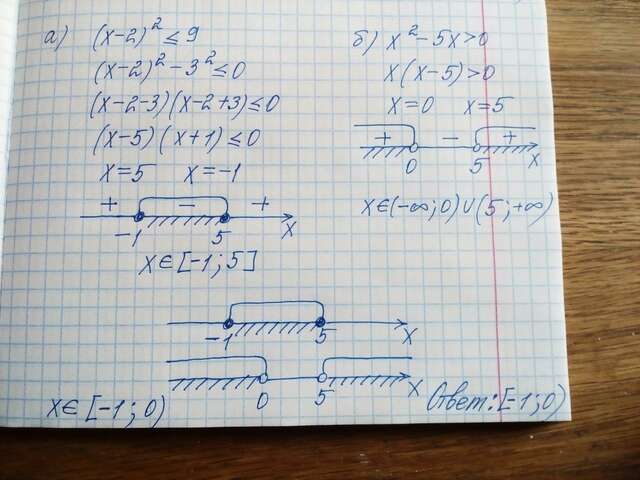 а) (x-2)² ≤ 9
(x-2)² - 3² ≤ 0
(x-2-3)(x-2+3) ≤ 0
(x-5)(x+1) ≤ 0
x=5 x=-1
+ - +
-1 5 x
x∈[-1;5]
б) x² - 5x > 0
x(x-5) > 0
x=0 x=5
+ - +
0 5 x
x∈(-∞;0)∪(5;+∞)
-1 5 x
0 5 x
x∈[-1;0)
Ответ: [-1;0)